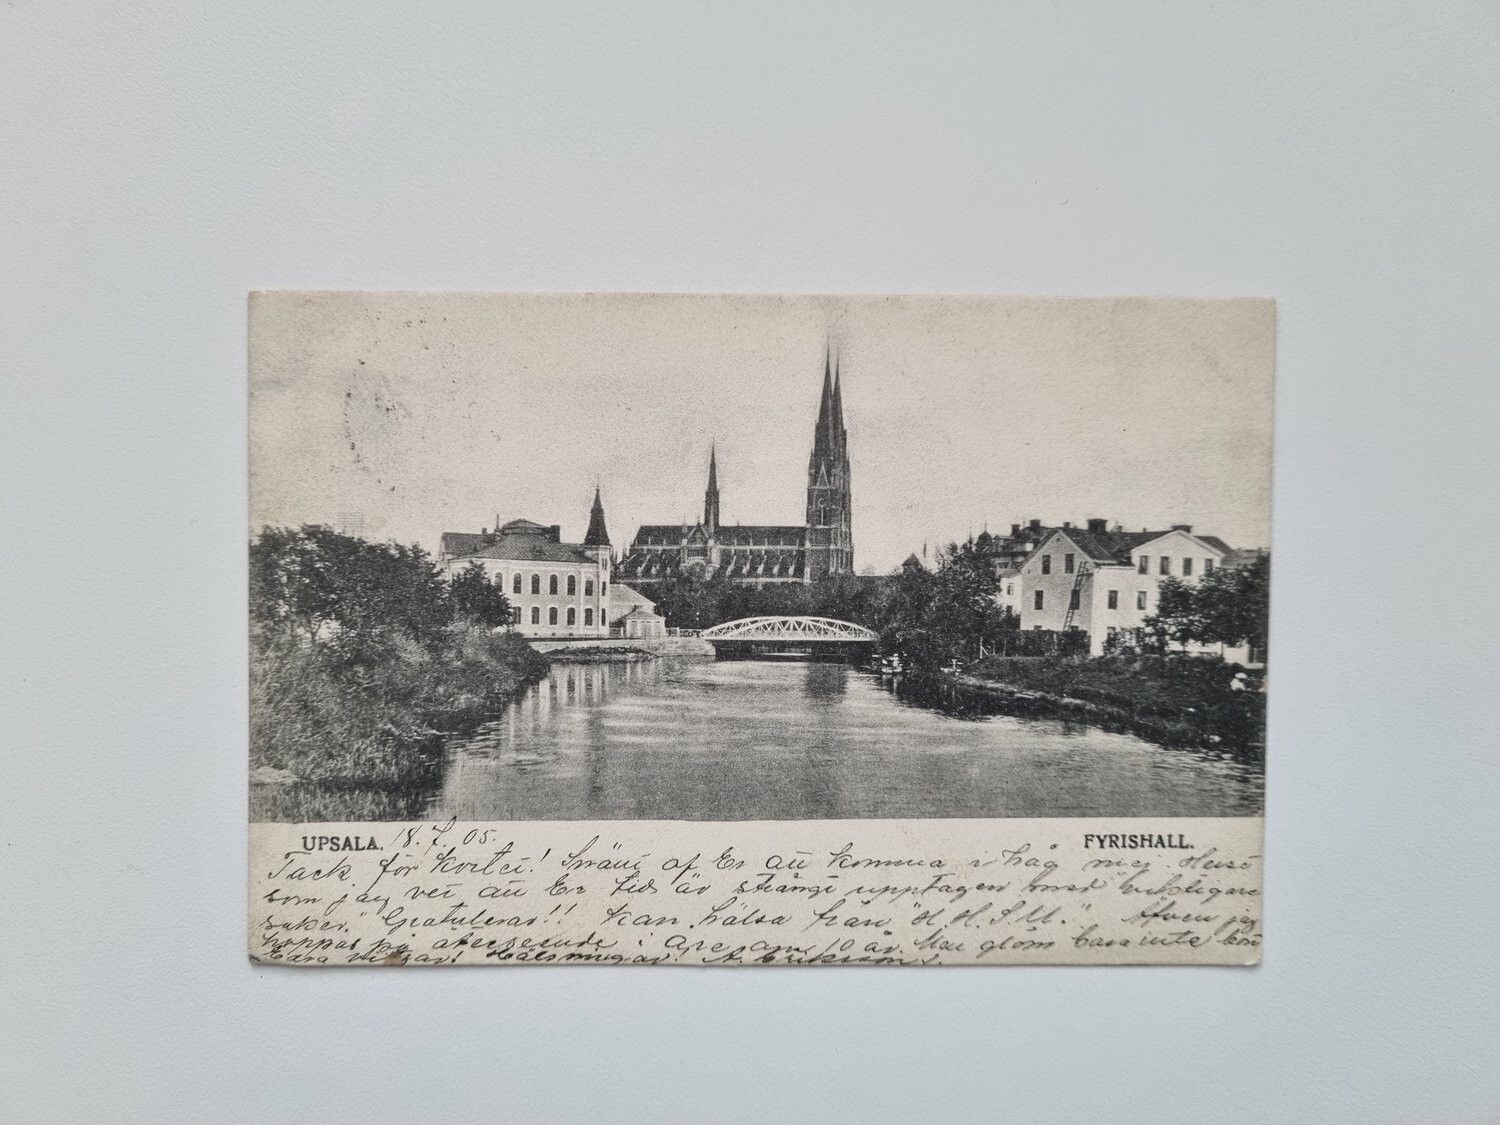 UPSALA. 18.7.05. FYRISHALL.
Tack för kortet! Snällt af Er att komma i håg mej. Helst
som jag vet att Er tid är strängt upptagen med viktigare
saker." Gratulerar!! kan hälsa från "H. H. S. M." Äfven jag
hoppas på återseende i Are om 10 år. Men glöm bara inte
bara Hälsningar! A. Eriksson.